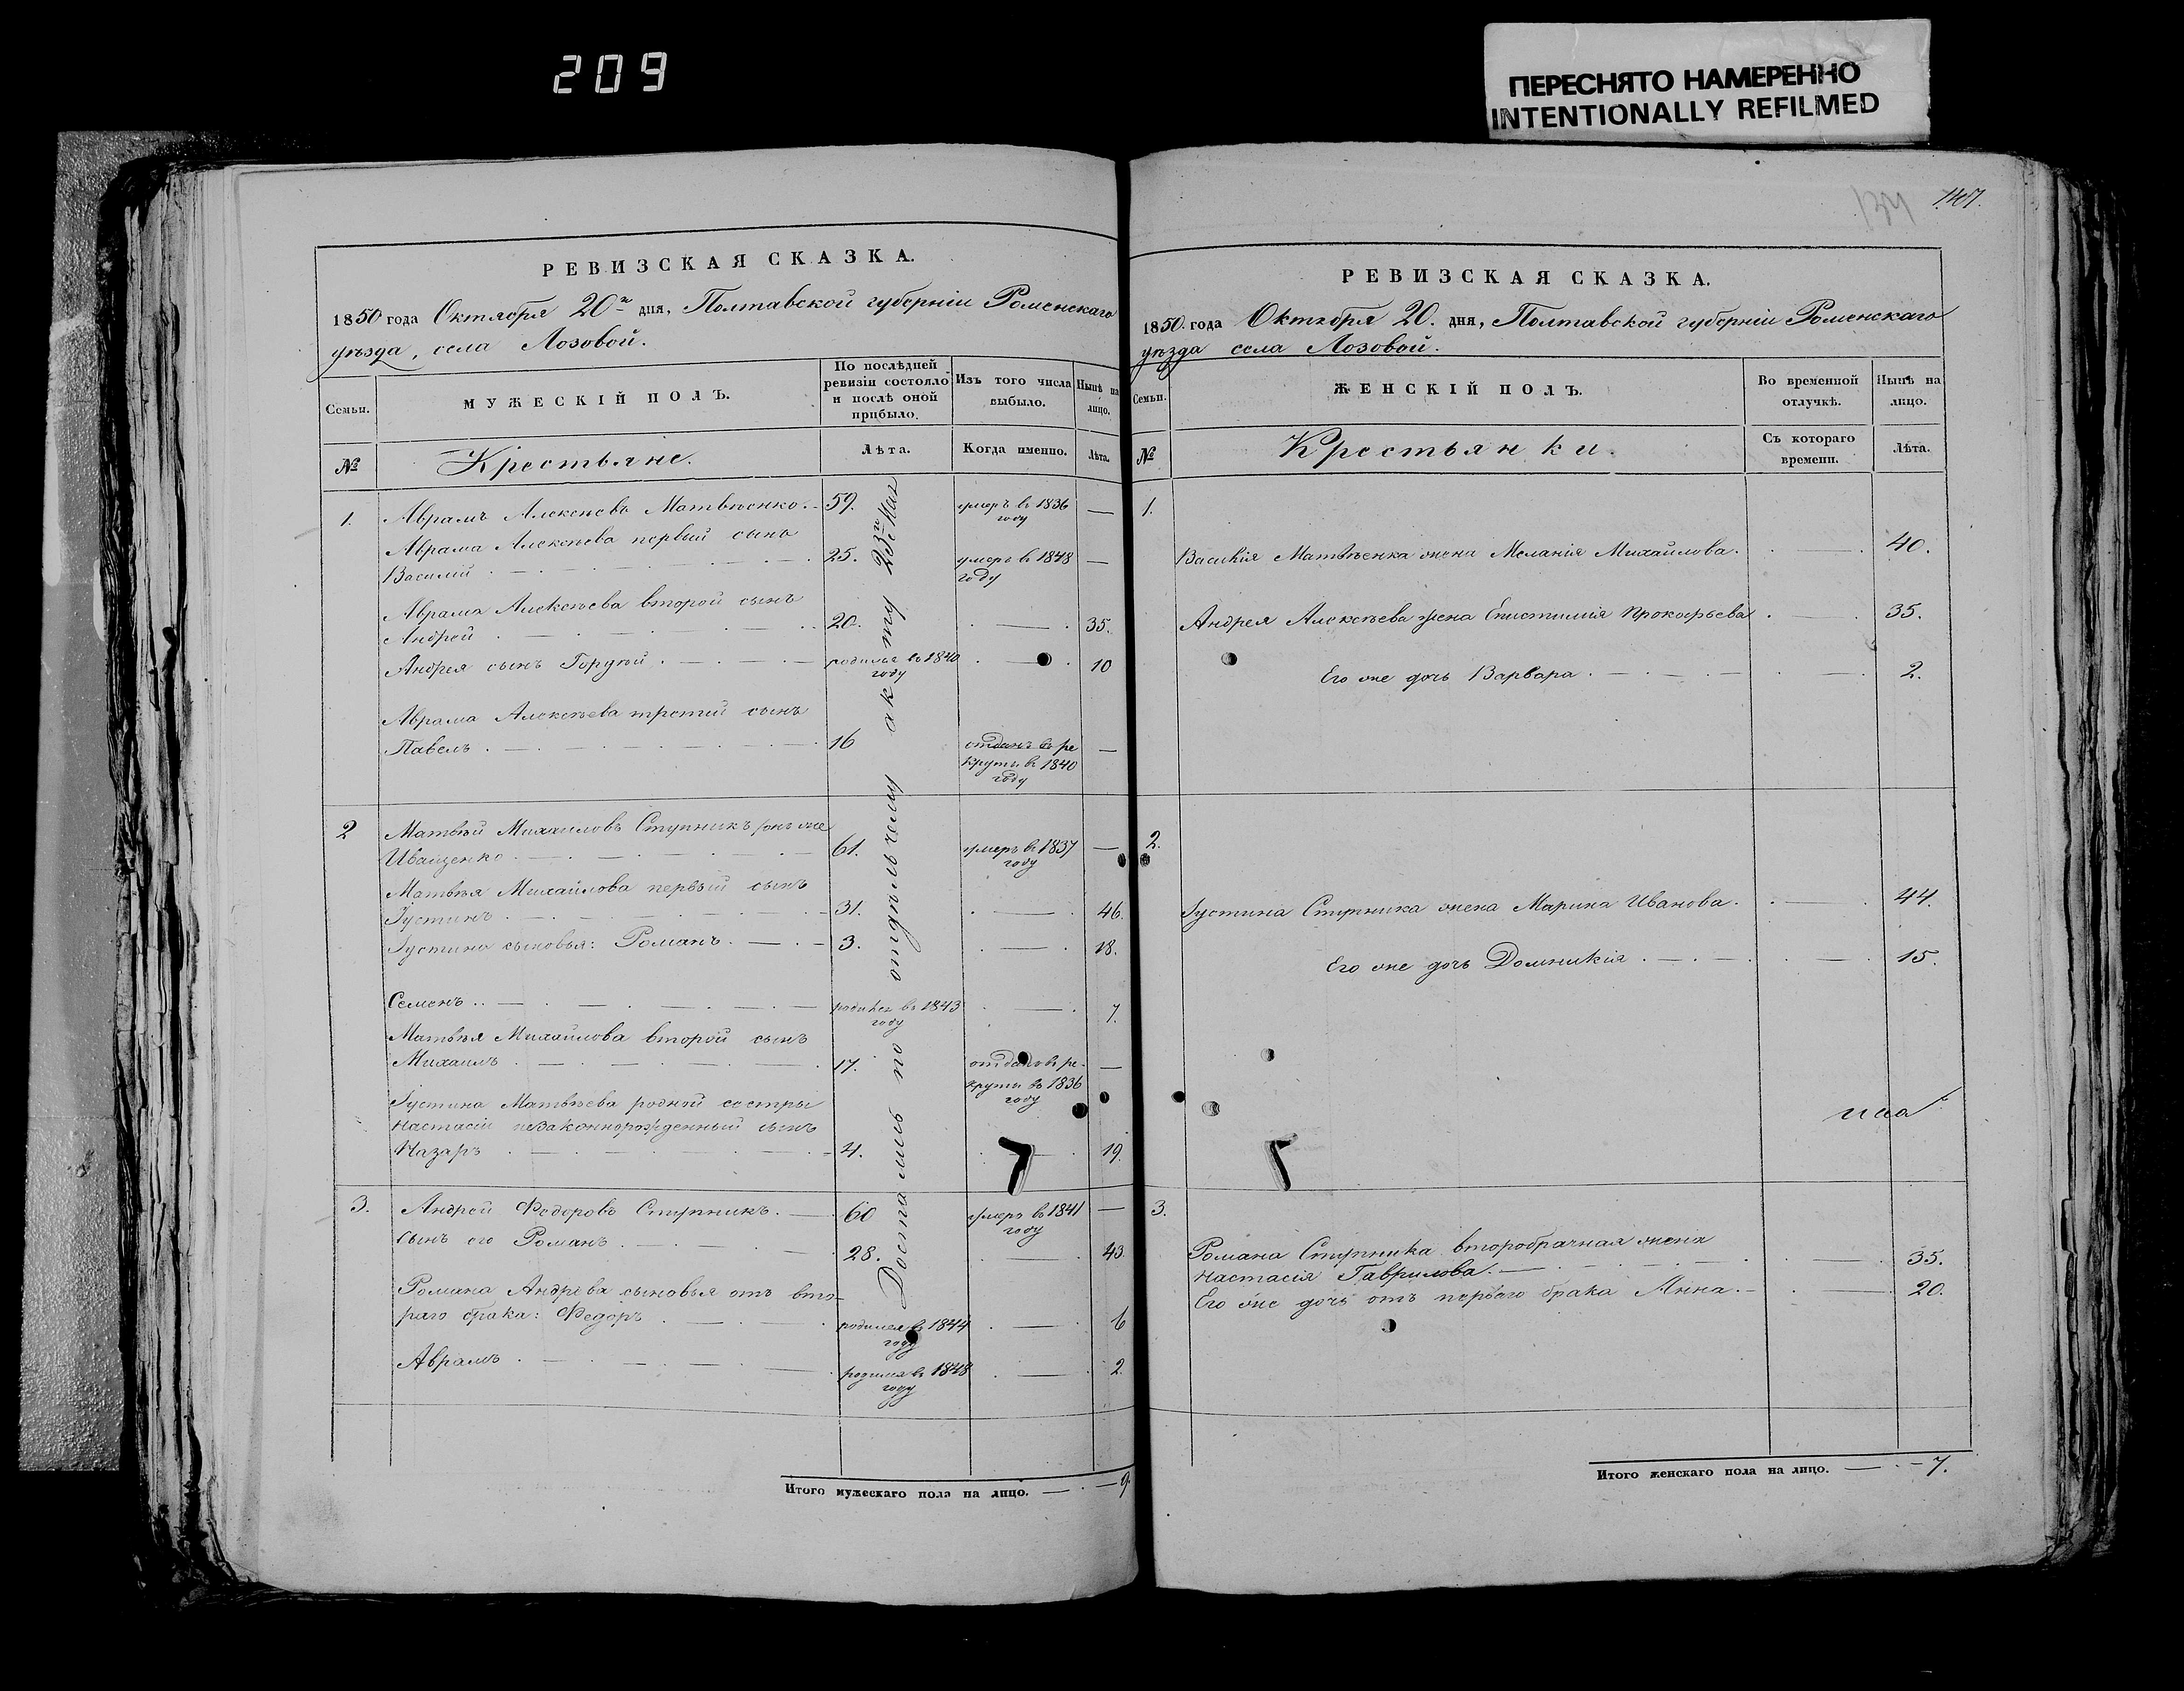 209
ПЕРЕСНЯТО НАМЕРЕННО
INTENTIONALLY REFILMED
134
147.
РЕВИЗСКАЯ СКАЗКА.
1850 года Октября 20го дня, Полтавской губерніи Роменскаго
уѣзда, села Лозовой.
Семьи.
МУЖЕСКІЙ ПОЛЪ.
По послѣдней
ревизіи состояло
и послѣ оной
прибыло.
Изъ того числа
выбыло.
Нынѣ на
лицо.
№
Крестьяне.
Лѣта.
Когда именно.
Лѣта.
1. Аврамъ Алексѣевъ Матвѣенко. 59. умеръ въ 1836 —
году
Аврама Алексѣева первый сынъ
Василій 25. умеръ въ 1848 —
году
Аврама Алексѣева второй сынъ
Андрей 20. — 35.
Андрея сынъ Гордѣй родился въ 1840 — 10
году
Аврама Алексѣева третий сынъ
Павелъ 16 отданъ въ ре —
круты въ 1840
году
2 Матвѣй Михайловъ Ступникъ онъ же
Иващенко 61. умеръ въ 1837 —
году
Матвѣя Михайлова первый сынъ
Іустинъ 31. — 46.
Іустина сыновья: Романъ 3. — 18.
Семенъ родился въ 1843 — 7.
году
Матвѣя Михайлова второй сынъ
Михаилъ 17. отданъ въ ре- —
круты въ 1836
году
Іустина Матвѣева родной сестры
Настасіи незаконнорожденный сынъ
Назаръ 4. — 19.
3. Андрей Федоровъ Ступникъ. 60 умеръ въ 1841 —
году
сынъ его Романъ 28. — 43.
Романа Андрѣева сыновья отъ вто-
раго брака: Федоръ родился въ 1844 — 6
году
Аврамъ родился въ 1848 — 2.
году
Итого мужескаго пола на лицо. — 9.
по отдѣльному акту 23го
РЕВИЗСКАЯ СКАЗКА.
1850. года Октября 20. дня, Полтавской губерніи Роменскаго
уѣзда села Лозовой.
Семьи.
ЖЕНСКІЙ ПОЛЪ.
Во временной
отлучкѣ.
Нынѣ на
лицо.
№
Крестьянки.
Съ котораго
времени.
Лѣта.
1.
Василія Матвѣенка жена Меланія Михайлова. — 40.
Андрея Алексѣева жена Епистимія Прокофьева — 35.
Его же дочь Варвара — 2.
2.
Іустина Ступника жена Марина Иванова. — 44.
Его же дочь Домникія — 15.
3.
Романа Ступника второбрачная жена
Настасія Гаврилова. — 35.
Его же дочь отъ перваго брака Анна. — 20.
Итого женскаго пола на лицо. — 7.